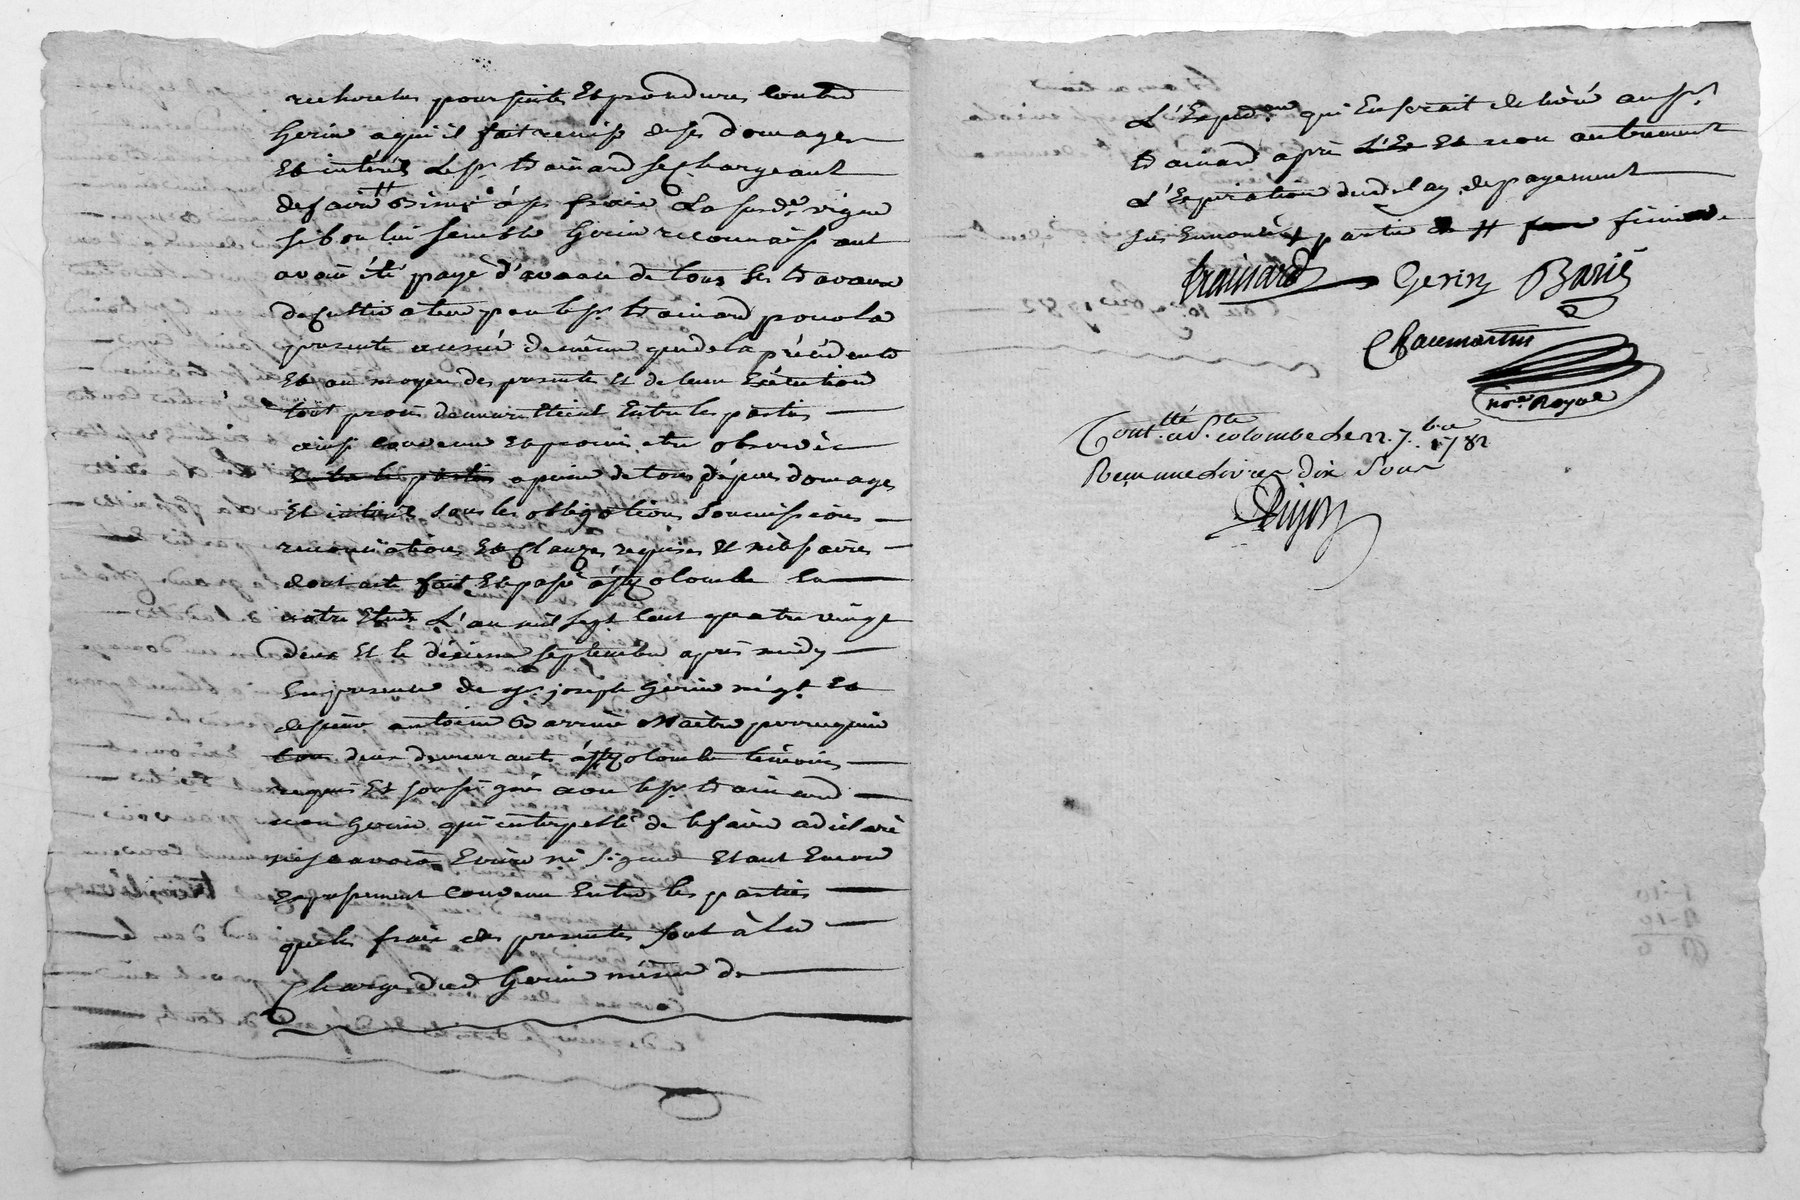 recherches poursuites et procedures contre
Gerin aqui il fait remise de ses domages
Et intérêts Le sr. trainard se chargeant
de faire à ses fraix La susde. vigne
si bon lui semble Gerin reconnaissant
avoir été payé d'avance de tous ses travaux
de culture par le sr. trainard pour la
presente année de même que de la précédente
Et au moyen des presentes et de leur Exécution
tout procès demeure Eteint Entre les parties
ainsi convenu et promis être observé
Entre les parties a peine de tous dépens domages
Et intérêts sous les obligations soumissions
renonciations Et Clauzes requises et nécessaires
dont acte fait Et passé à ste Colombe En
notre Etude L'an mil sept cent quatre vingt
deux Et le dixieme septembre après midy
En presence de sr. joseph Gerin négt. Et
de sieur antoine Barrié Maître perruquier
tous deux demeurants à ste Colombe témoins
requis Et soussignés avec le sr. trainard
non Gerin qui interpellé de le faire a déclaré
ne sçavoir Ecrire ni signer Etant Encore
Expressement convenu Entre les parties
que les fraix des presentes sont à la
Charge dud Gerin même de
L'Expedon. qui En serait delivré au sr.
trainard après L'Ex Et non autrement
L'Expiration dud delay de payement
trainard Gerin Barié
Chaumartin
nore. Royal
Contllé. a Ste. colombe le 22 7.bre 1782
Reçu une Livres dix Sous
Dujon